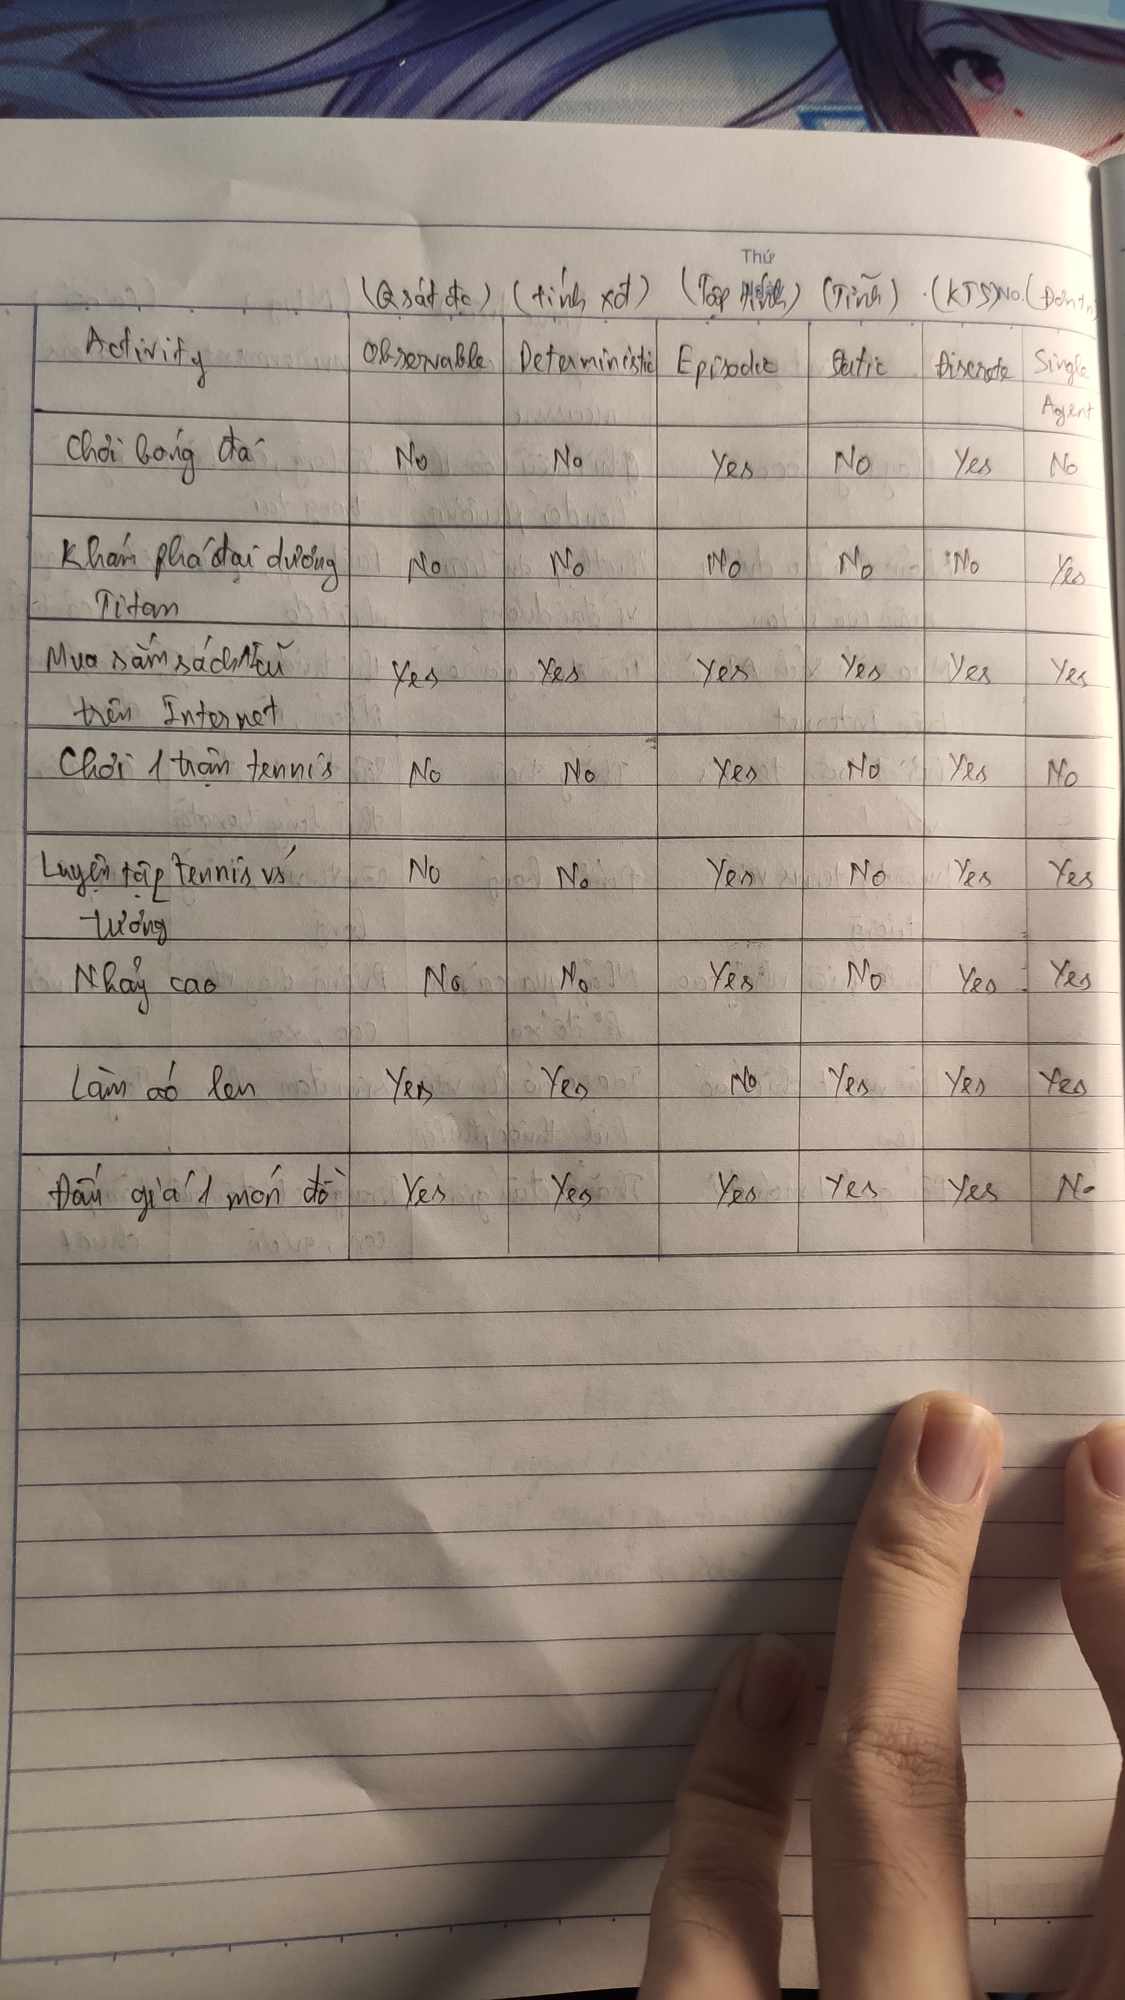 Thứ
(Q sát đc) (tính xđ) (Tập) (Tĩnh) (KTS) No. (Đơn
Activity Observable Deterministic Episodic Static Discrete Single
Agent
Chơi bóng đá No No Yes No Yes No
Khám phá đại dương No No No No No Yes
Titan
Mua sắm sách cũ Yes Yes Yes Yes Yes Yes
trên Internet
Chơi 1 trận tennis No No Yes No Yes No
Luyện tập tennis vs No No Yes No Yes Yes
tường
Nhảy cao No No Yes No Yes Yes
Làm áo len Yes Yes No Yes Yes Yes
Đấu giá 1 món đồ Yes Yes Yes Yes Yes No